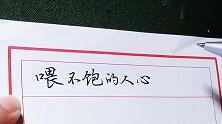 喂不饱的人心